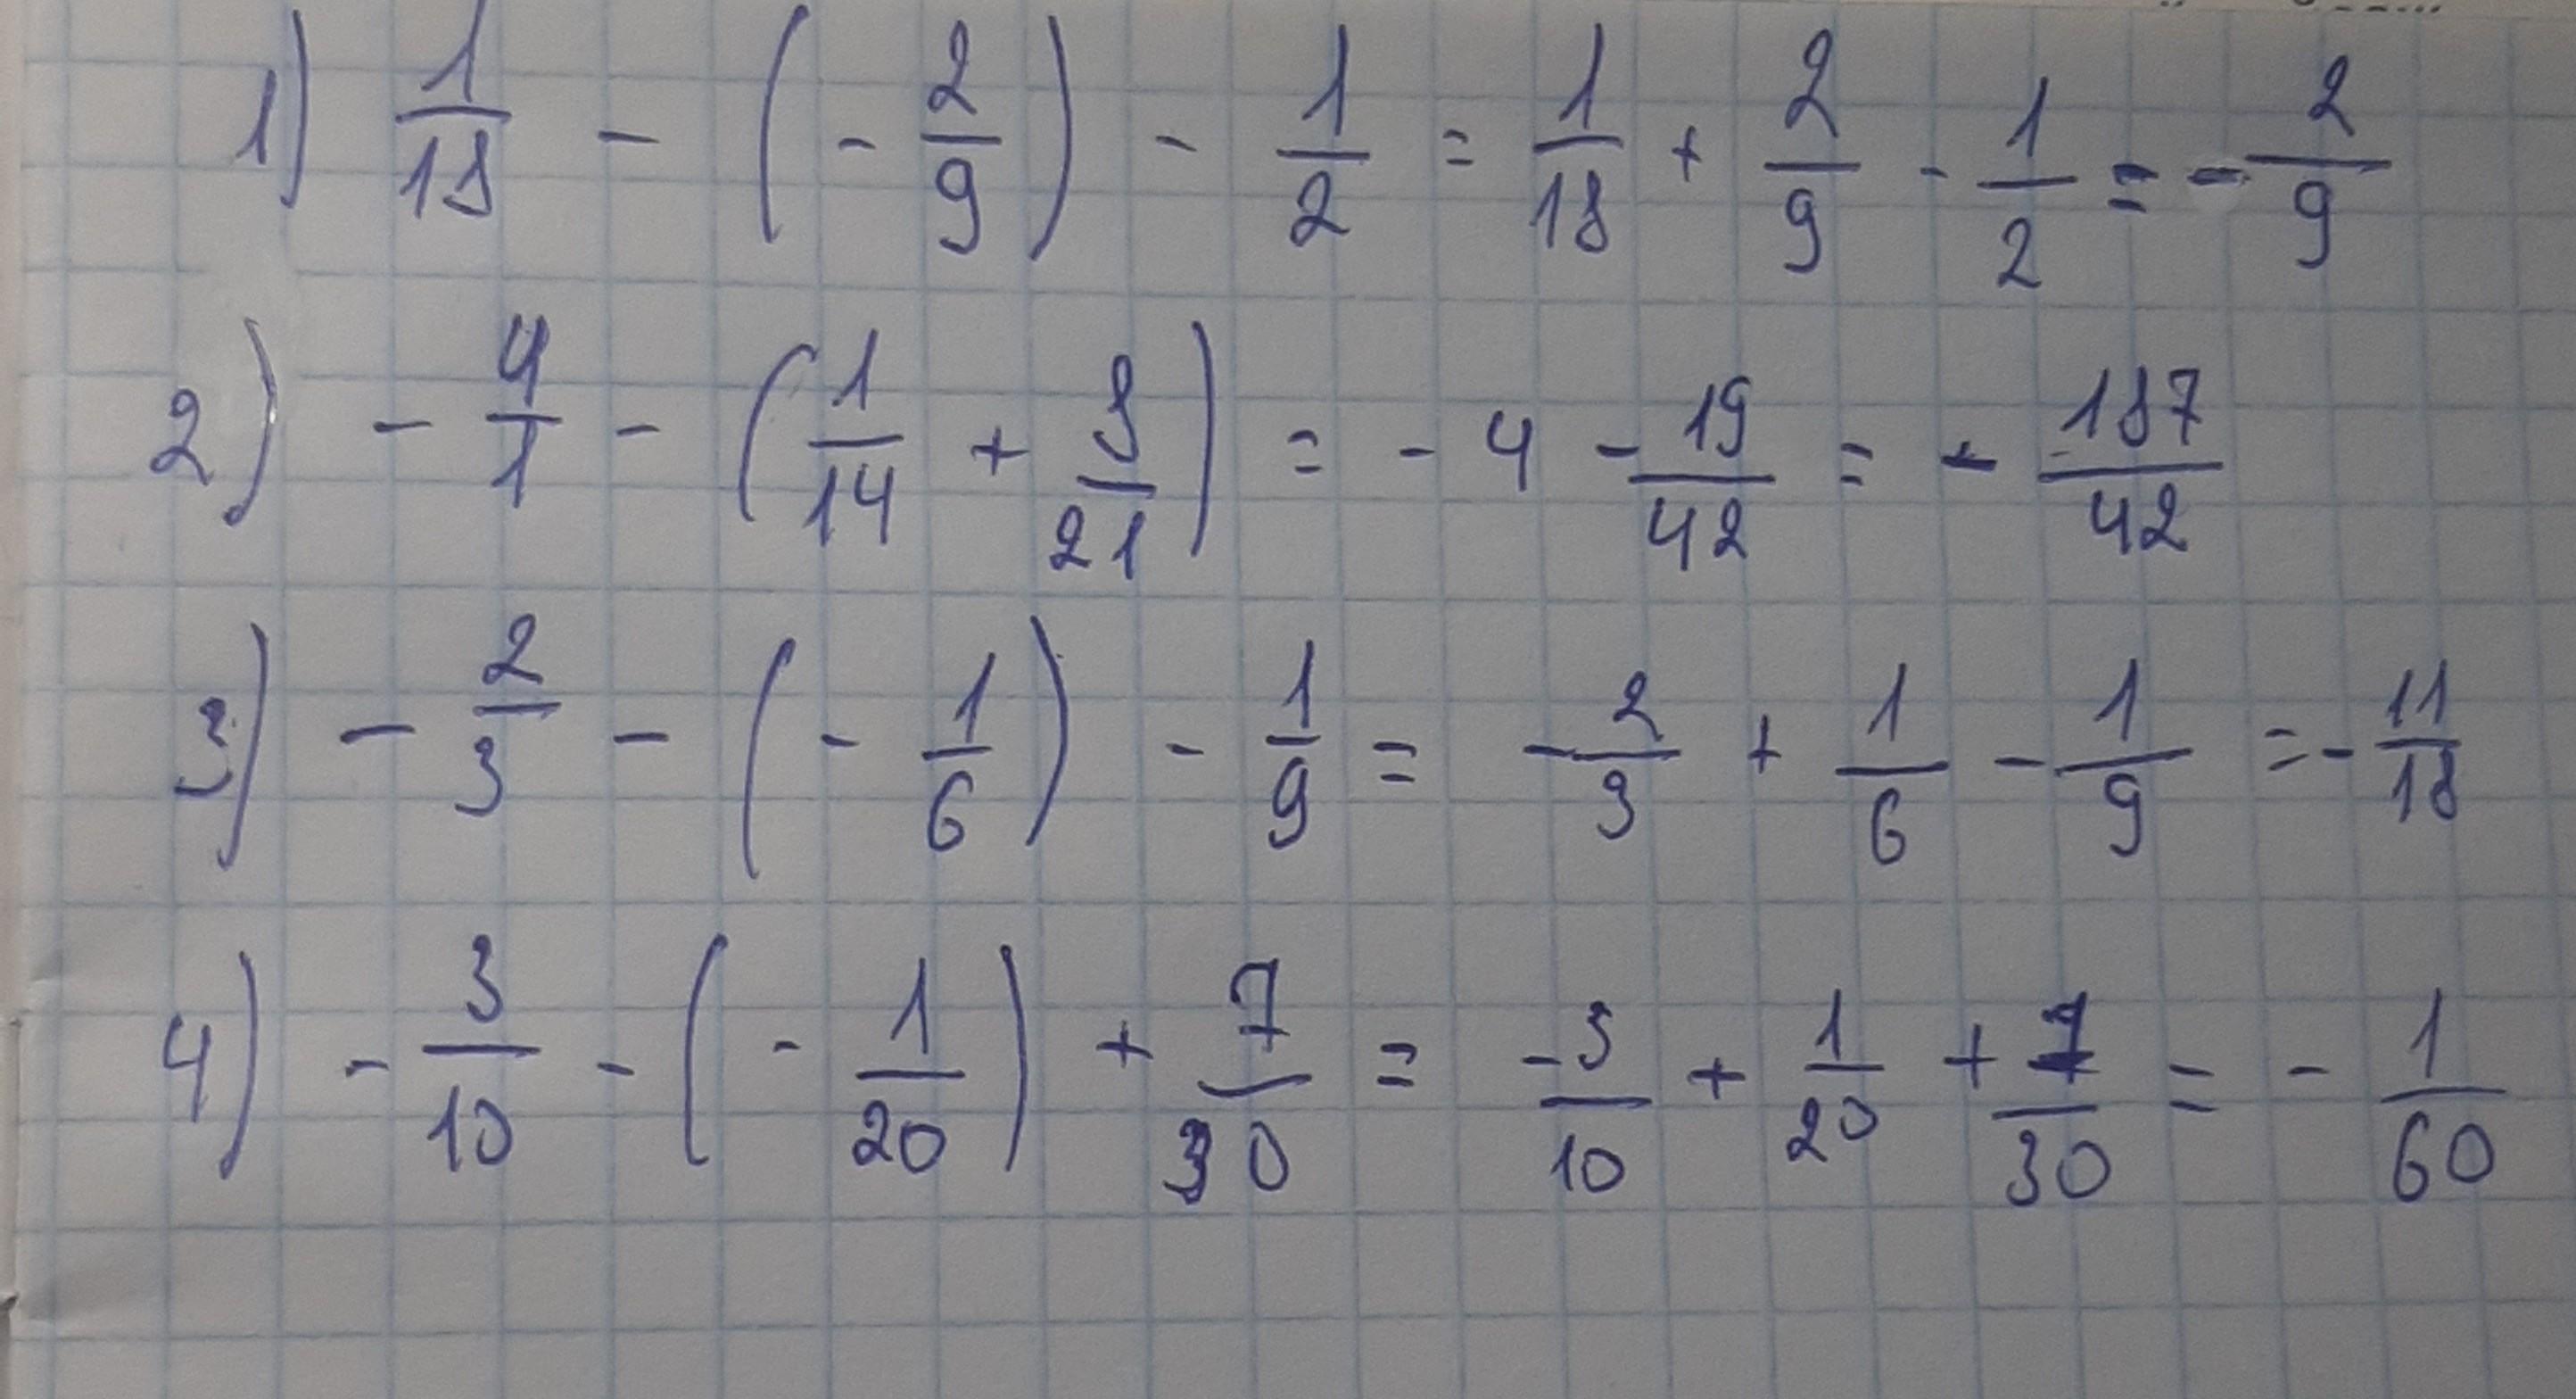 1) 1/18 - (- 2/9) - 1/2 = 1/18 + 2/9 - 1/2 = - 2/9
2) - 4/1 - (1/14 + 8/21) = - 4 - 19/42 = - 187/42
3) - 2/3 - (- 1/6) - 1/9 = - 2/3 + 1/6 - 1/9 = - 11/18
4) - 3/10 - (- 1/20) + 7/30 = -3/10 + 1/20 + 7/30 = - 1/60